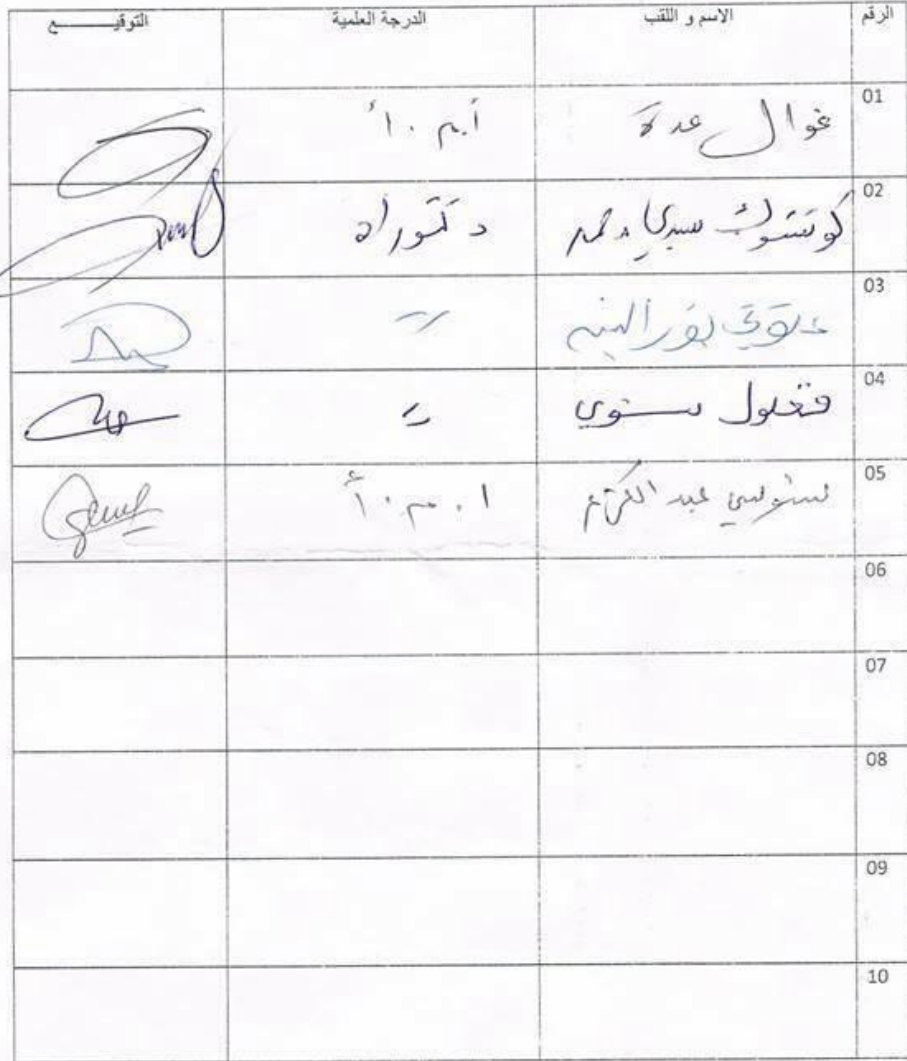 الرقم الاسم و اللقب الدرجة العلمية التوقيــــــع
01 غوال عدة أ.م.أ
02 كوتشوك سيدي محمد دكتوراه
03 نور الدين //
04 فغلول سنوسي //
05 سنوسي عبد الكريم أ.م.أ
06
07
08
09
10